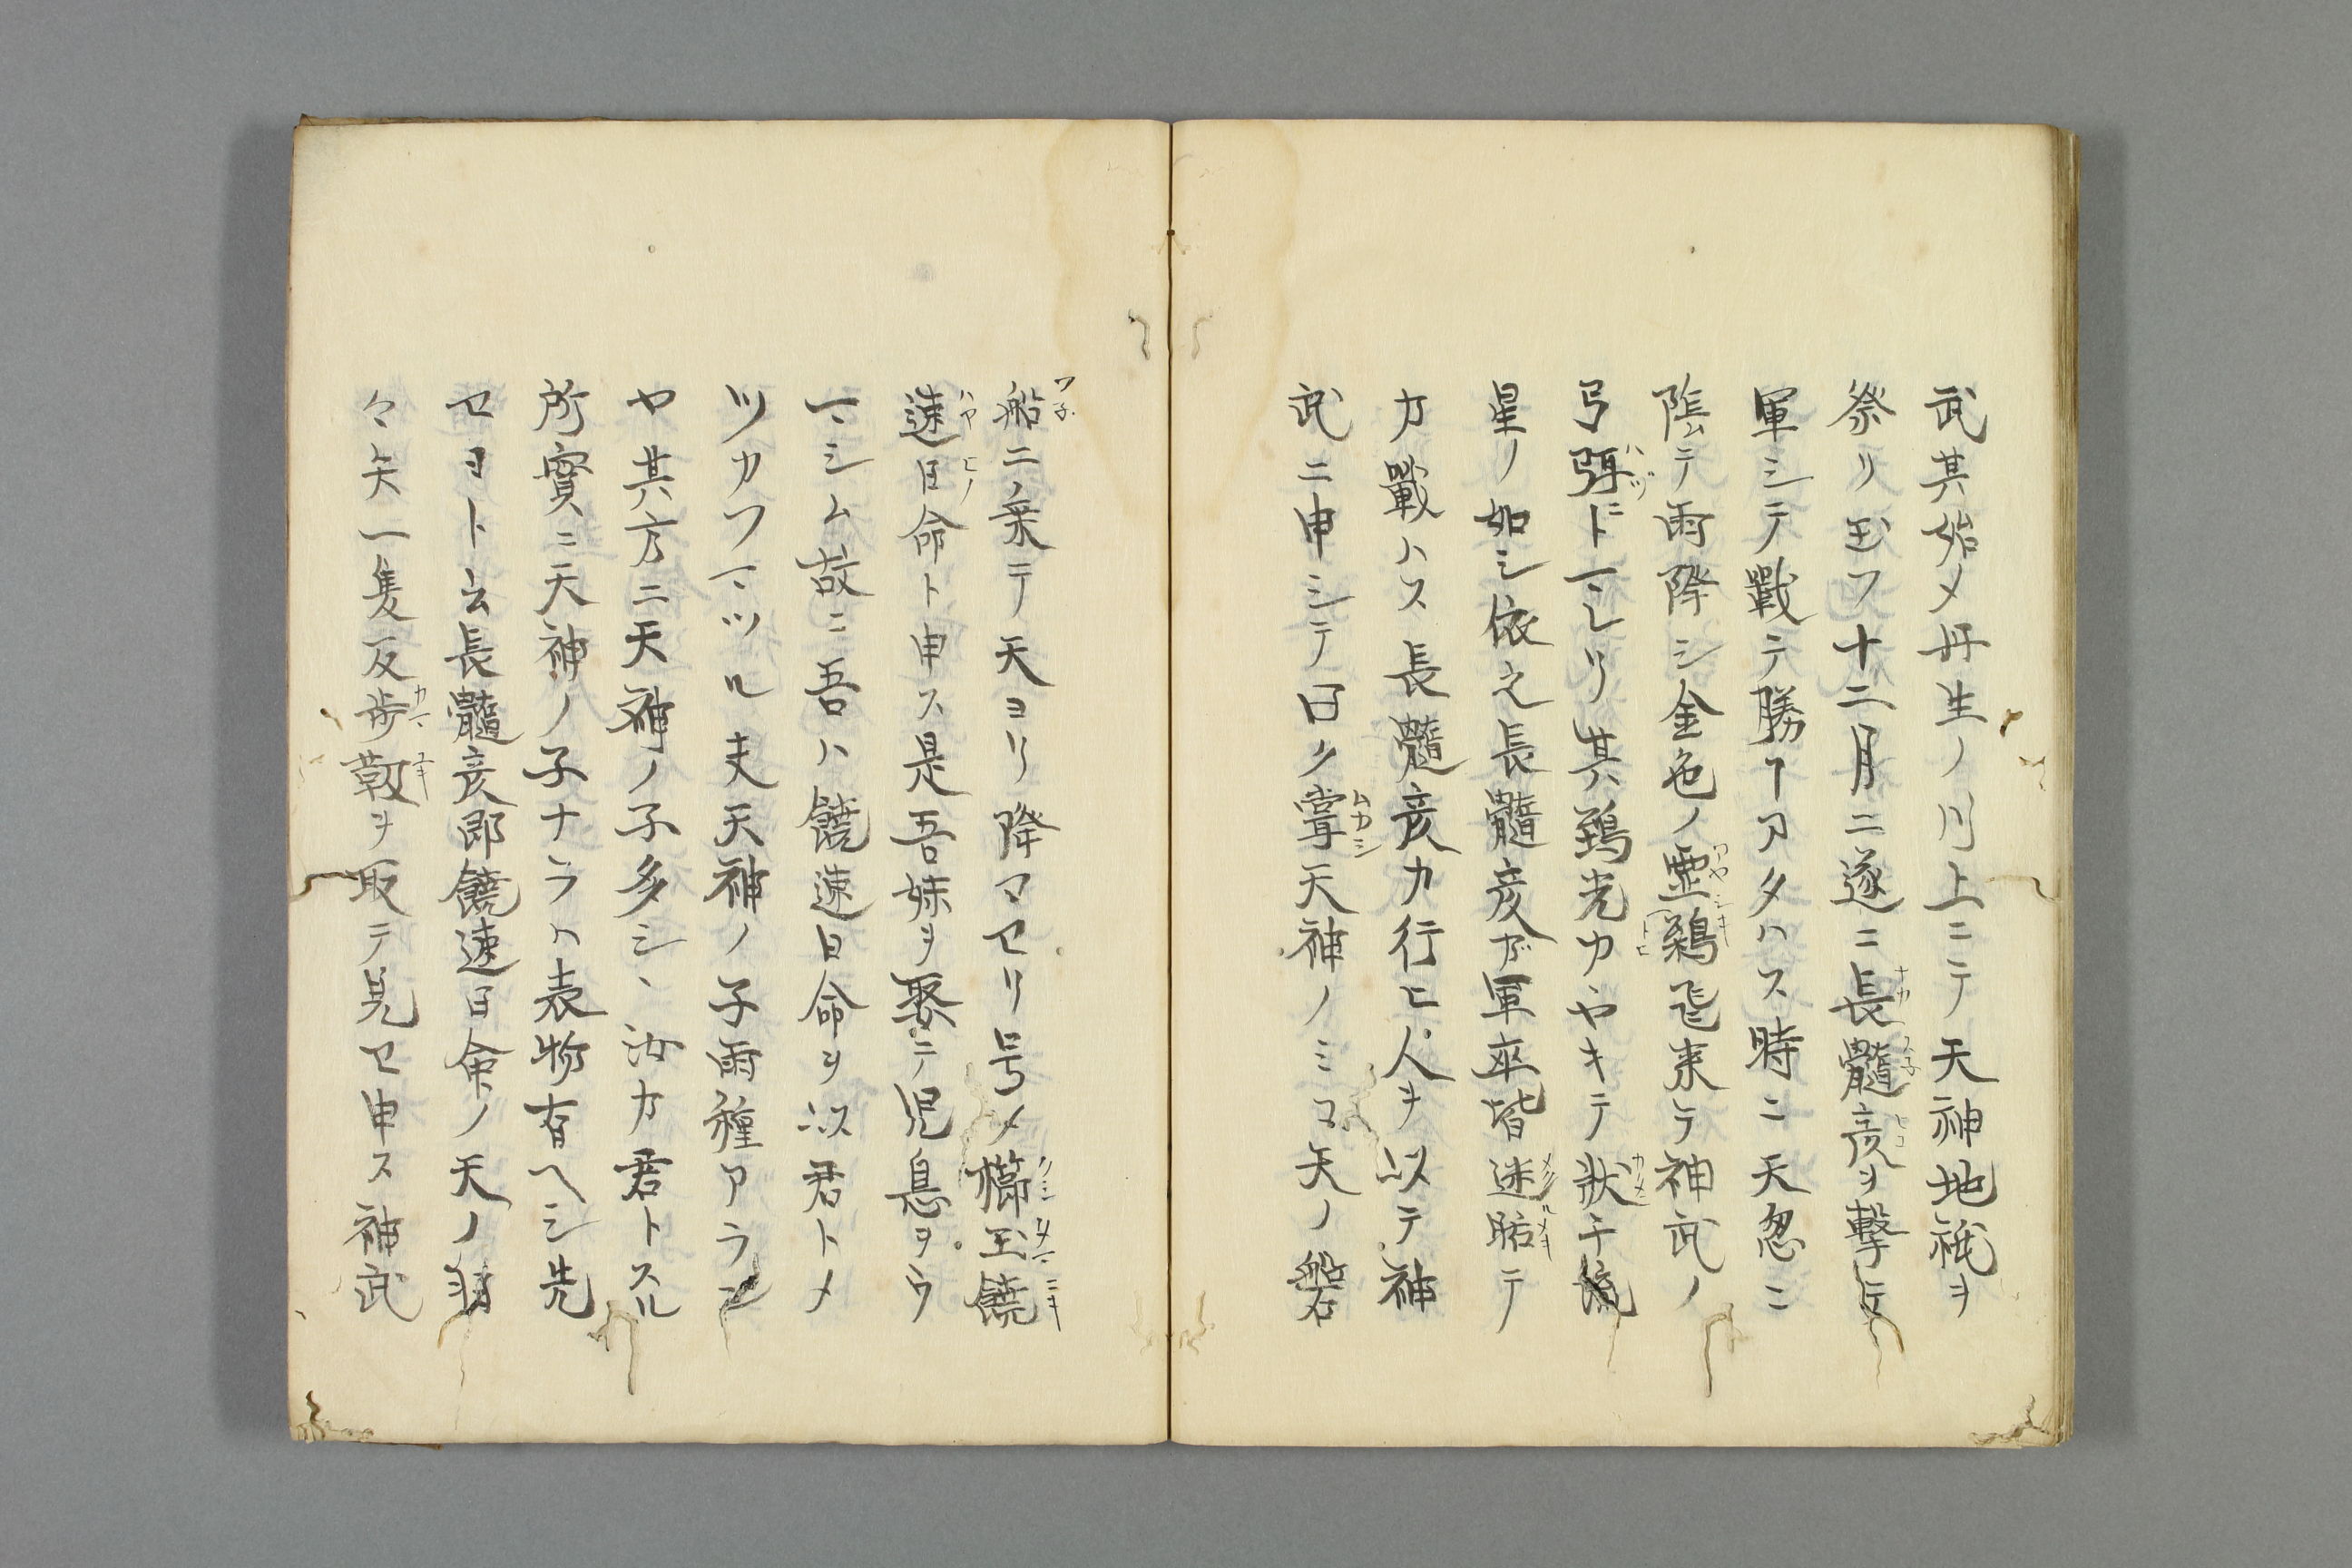 武其始メ丹生ノ川上ニテ天神地祇ヲ
祭リ玉フ十二月ニ遂ニ長髓彦ヲ撃テ
軍シテ戰テ勝ヿアタハス時ニ天忽ニ
陰テ雨降シ金色ノ霊鵄飛来テ神武ノ
弓弭ニトマレリ其鵄光カヤキテ状チ流
星ノ如シ依之長髓彦ガ軍卒皆迷眩テ
力戰ハス長髓彦カ行ヒ人ヲ以テ神
武ニ申シテ曰ク甞天神ノミコ天ノ磐
船ニノ乗テ天ヨリ降マセリ号メ櫛玉饒
速日命ト申ス是吾妹ヲ娶テ児息ヲウ
マシム故ニ吾ハ饒速日命ヲ以君トメ
ツカフマツル夫天神ノ子両種アラン
ヤ其方ニ天神ノ子多シ、汝カ君トスル
所實ニ天神ノ子ナラハ表物有ヘシ先
セヨト云長髓彦即饒速日命ノ天ノ羽
々矢一隻及歩靫ヲ取テ見セ申ス神武